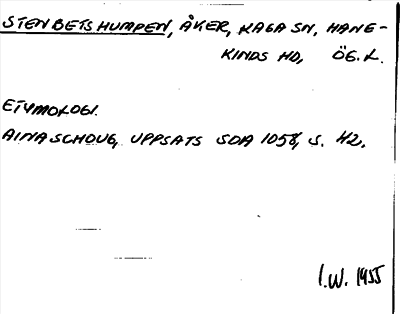 STENBETSHUMPEN, ÅKER, KAGA SN, HANE-
KINDS HD, ÖG.L.
ETYMOLOGI.
AINA SCHOUG, UPPSATS SOA 1058, S. 42.
I.W. 1955